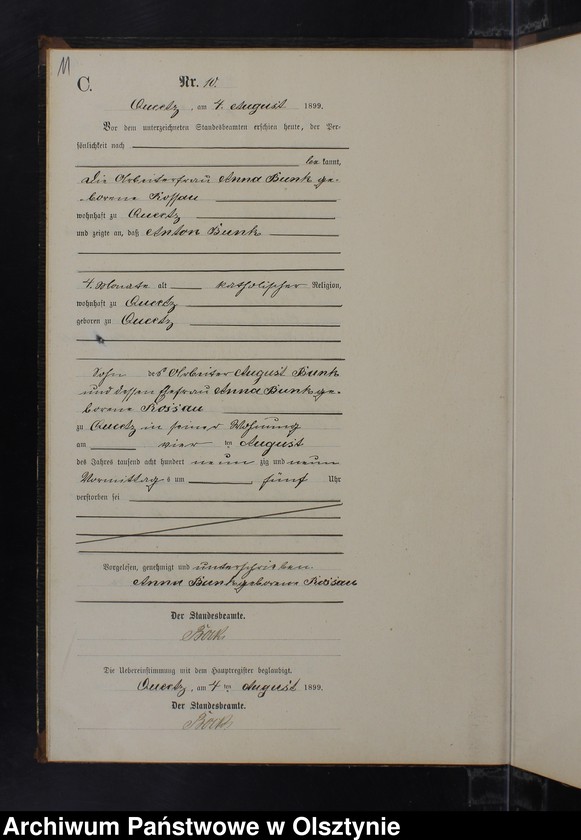 11
C.
Nr. 10.
Queetz, am 4. August 1899.
Vor dem unterzeichneten Standesbeamten erschien heute, der Per-
sönlichkeit nach
be kannt,
die Arbeiterfrau Anna Bunk ge-
borene Rossau
wohnhaft zu Queetz
und zeigte an, daß Anton Bunk
4. Monate alt katholischer Religion,
wohnhaft zu Queetz
geboren zu Queetz
Sohn des Arbeiter August Bunk
und dessen Ehefrau Anna Bunk ge-
borene Rossau
zu Queetz in seiner Wohnung
am vier ten August
des Jahres tausend acht hundert neun zig und neun
Vormittag s um fünf Uhr
verstorben sei
Vorgelesen, genehmigt und unterschrieben
Anna Bunk geborene Rossau
Der Standesbeamte.
Böck
Die Uebereinstimmung mit dem Hauptregister beglaubigt.
Queetz, am 4 ten August 1899.
Der Standesbeamte.
Böck
Archiwum Państwowe w Olsztynie